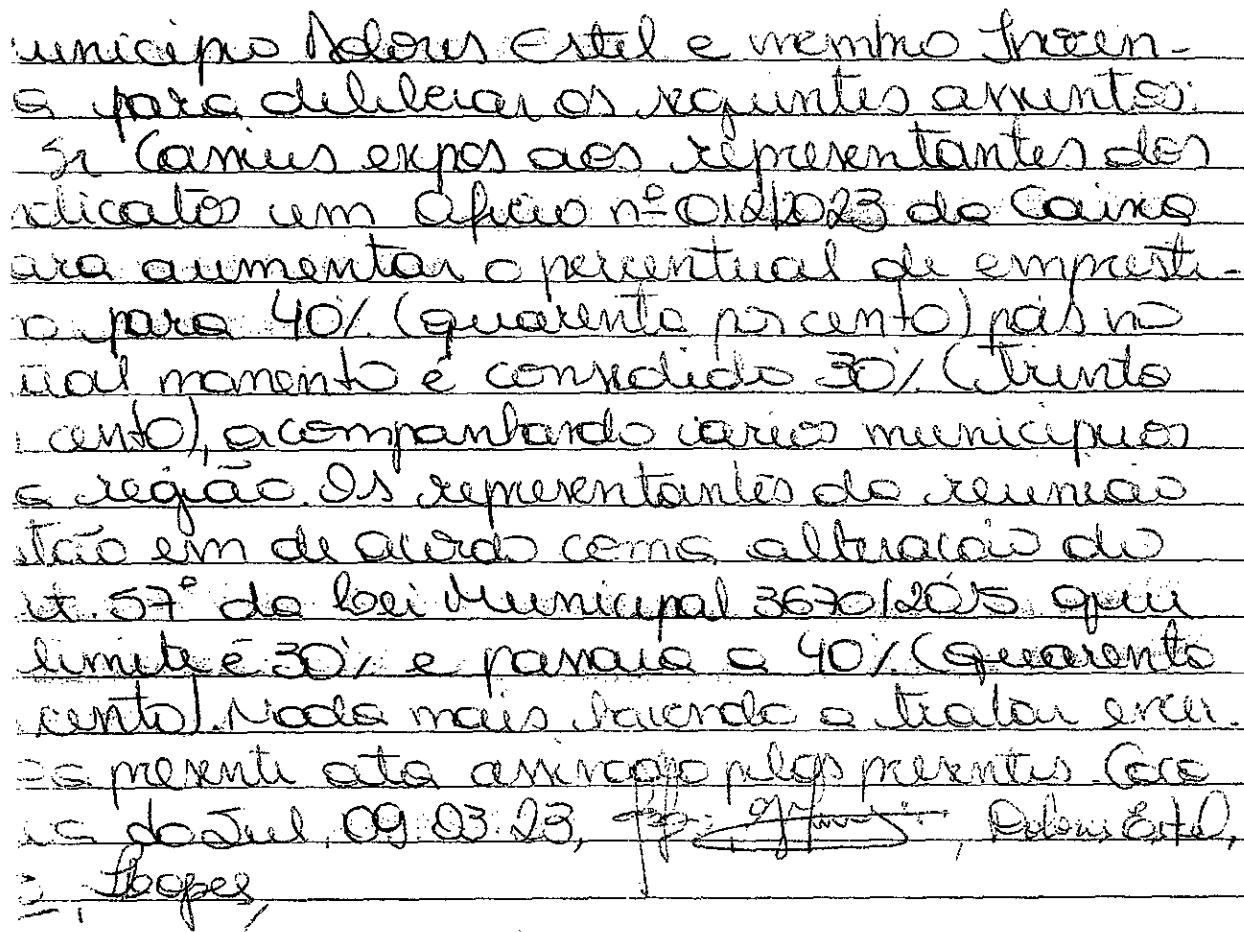 unicipio Dolores Estel e membro
a para deliberar os seguintes assuntos:
Sr expos aos representantes dos
dicatos um Oficio nº 012/2023 da Caixa
ara aumentar o percentual de empresti-
o para 40% (quarenta por cento) pois no
ual momento é consedido 30% (trinta
cento), acompanhando varios municipios
a região. Os representantes da reunião
stão em de acordo com a alteração do
rt. 57º da Lei Municipal 3670/2015 que
limite é 30% e passara a 40% (quarenta
cento). Nada mais havendo a tratar encer-
a presente ata assinada pelos presentes. Caça
do Sul, 09.03.23, Dolores Estel,
Lopes,